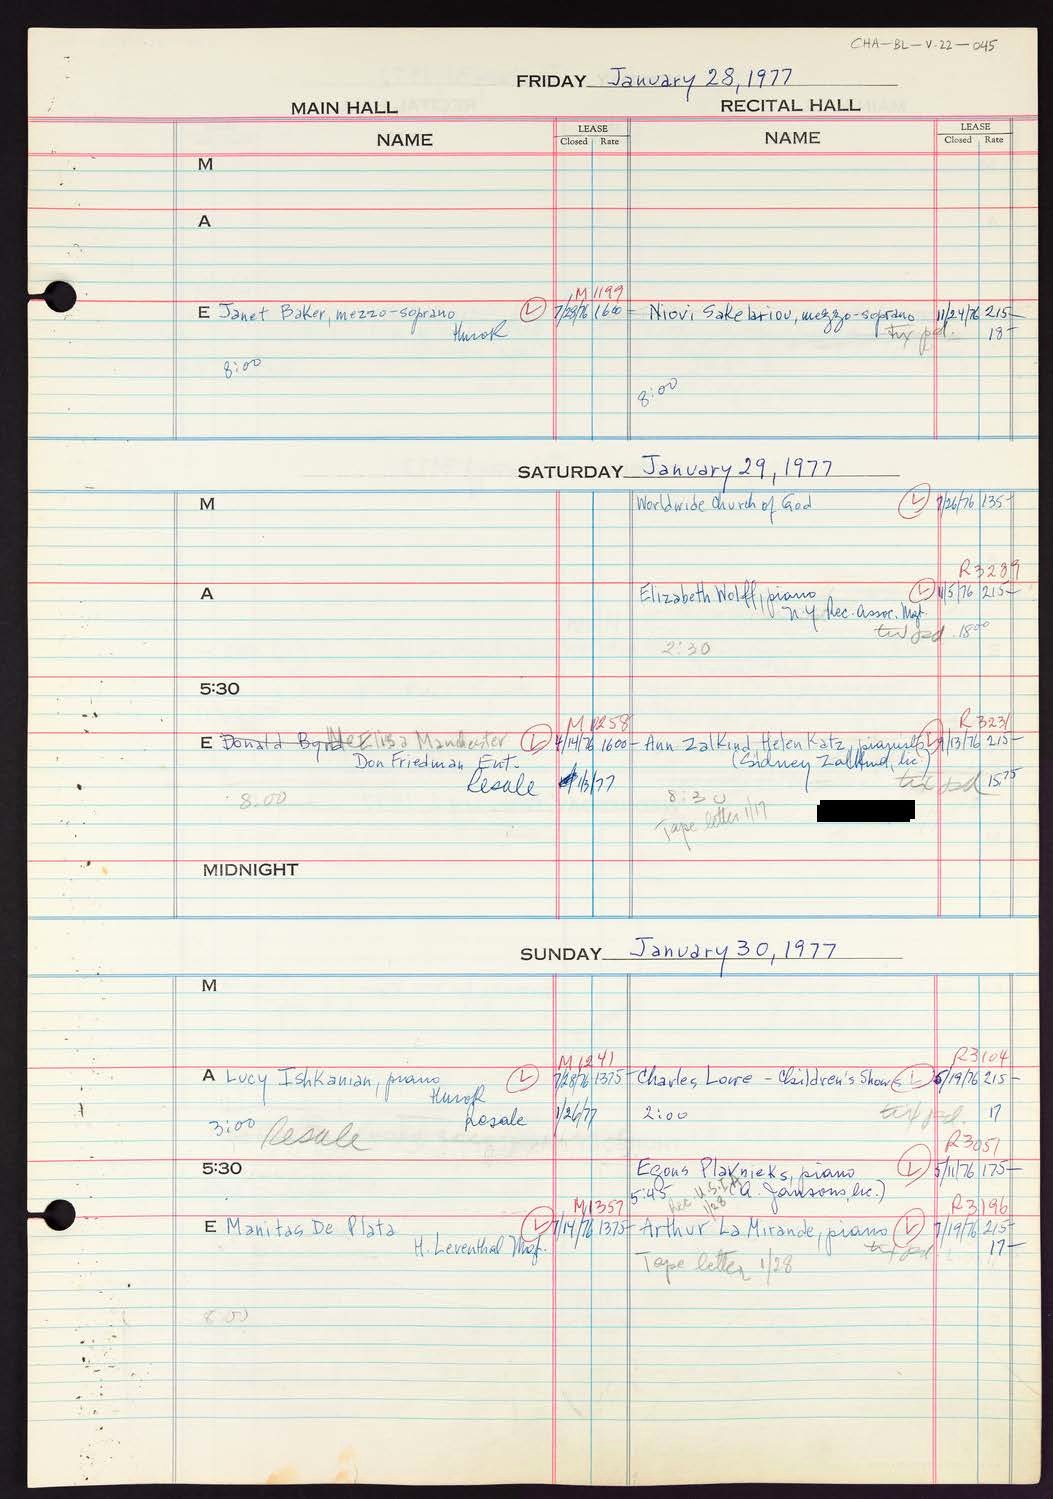 CHA-BL-V.22-045
FRIDAY January 28, 1977
MAIN HALL RECITAL HALL
NAME LEASE Closed Rate NAME LEASE Closed Rate
M
A
M1199
E Janet Baker, mezzo-soprano L 7/28/76 1600- Niovi Sakelariou, mezzo-soprano 11/24/76 215-
Hurok tix pd. 18-
8:00
8:00
SATURDAY January 29, 1977
M Worldwide Church of God L 7/26/76 135-
R3289
A Elizabeth Wolff, piano L 11/5/76 215-
N.Y Rec. Assoc. Mgt.
tix pd .18⁰⁰
2:30
5:30
M1258 R3231
E Donald Byrd Melissa Manchester L 4/14/76 1600- Ann Zalkind, Helen Katz, pianists L 9/13/76 215-
Don Friedman Ent. (Sidney Zalkind, lic.)
Resale 1/3/77 tix pd 15⁷⁵
8:00 8:30
Tape letter 1/17
MIDNIGHT
SUNDAY January 30, 1977
M
M1241 R3104
A Lucy Ishkanian, piano L 7/28/76 1375- Charles Lowe - Children's Show L 5/19/76 215-
Hurok
Resale 1/26/77 2:00 tix pd. 17
3:00 Resale
R3051
5:30 Egons Plaknieks, piano L 5/11/76 175-
5:45 Rec U.S.I.A 1/28 (A. Jansons, lic.)
M1357 R3196
E Manitas De Plata L 7/14/76 1375- Arthur La Mirande, piano L 7/19/76 215-
H. Leventhal Mgt. tix pd 17-
Tape letter 1/28
8:00